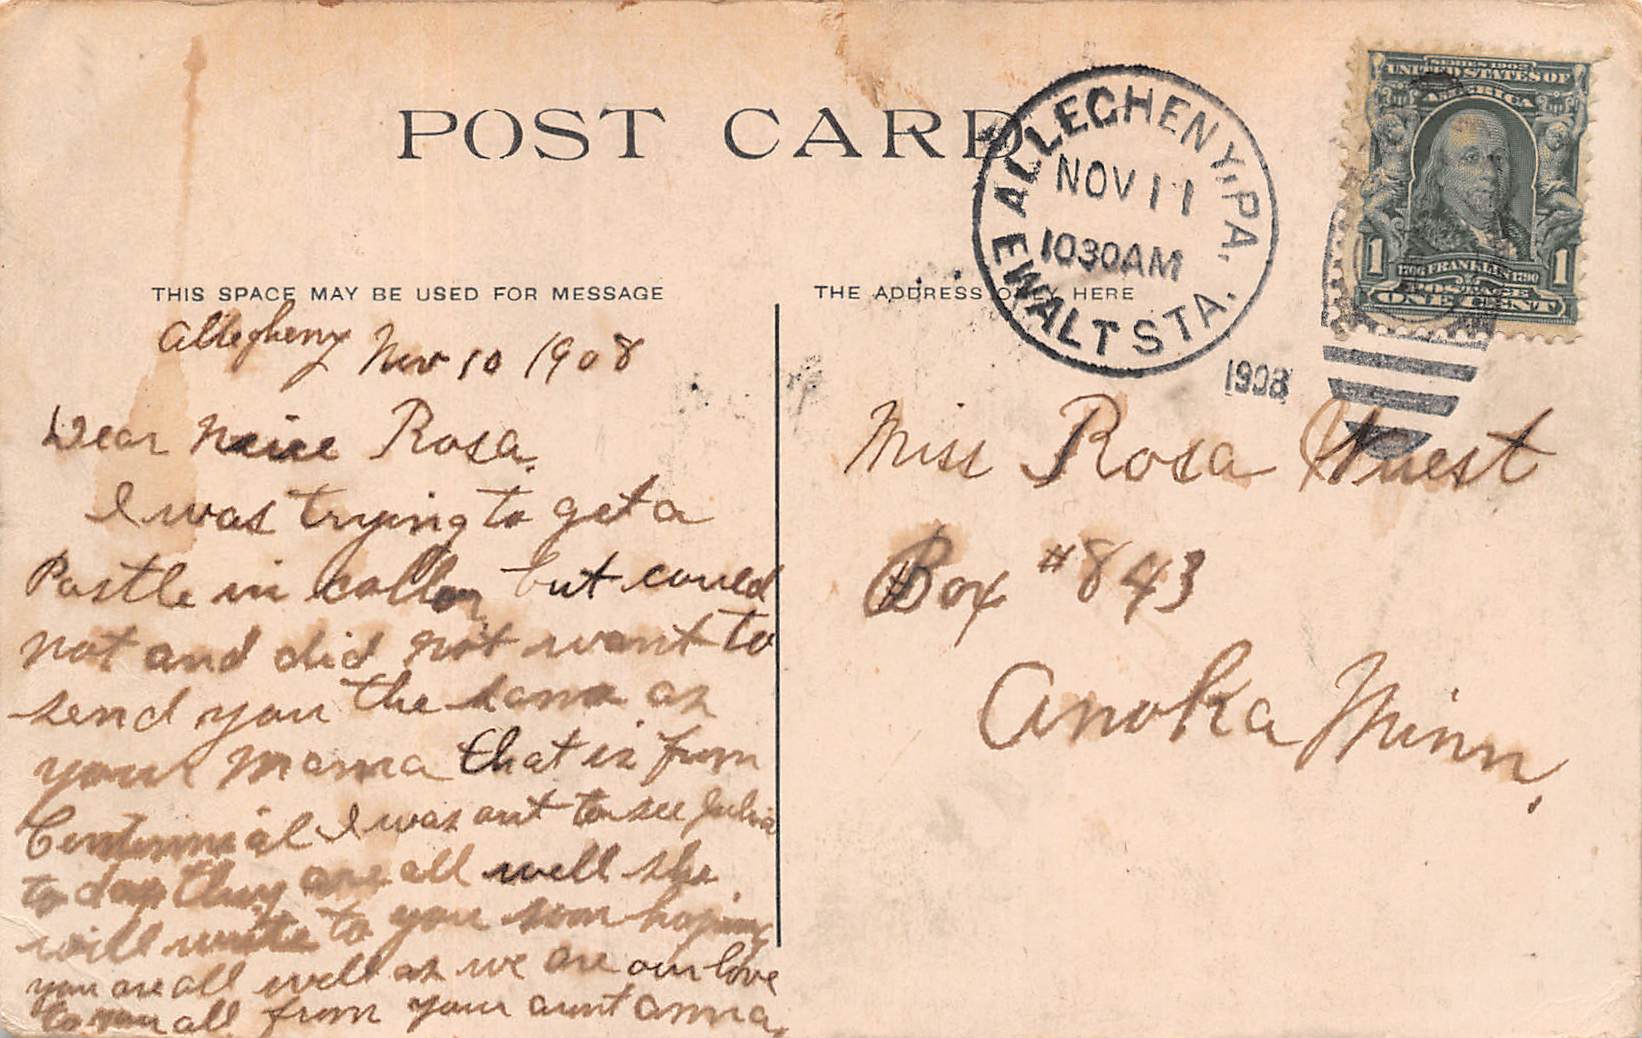 POST CARD
THIS SPACE MAY BE USED FOR MESSAGE
Allegheny Nov 10 1908
Dear Neice Rosa.
I was trying to get a
Postle in coller but could
not and did not want to
send you the same as
your Mama that is from
Centennial I was out to see Julia
to day they are all well she
will write to you soon hoping
you are all well as we are our love
to you all from your aunt Anna.
ALLEGHENY, PA.
NOV 11
1030AM
EWALT STA.
1908
SERIES 1902
UNITED STATES OF
AMERICA
1706 FRANKLIN 1790
POSTAGE
1 1
ONE CENT
THE ADDRESS ONLY HERE
Miss Rosa Wuest
Box #843
Anoka Minn.